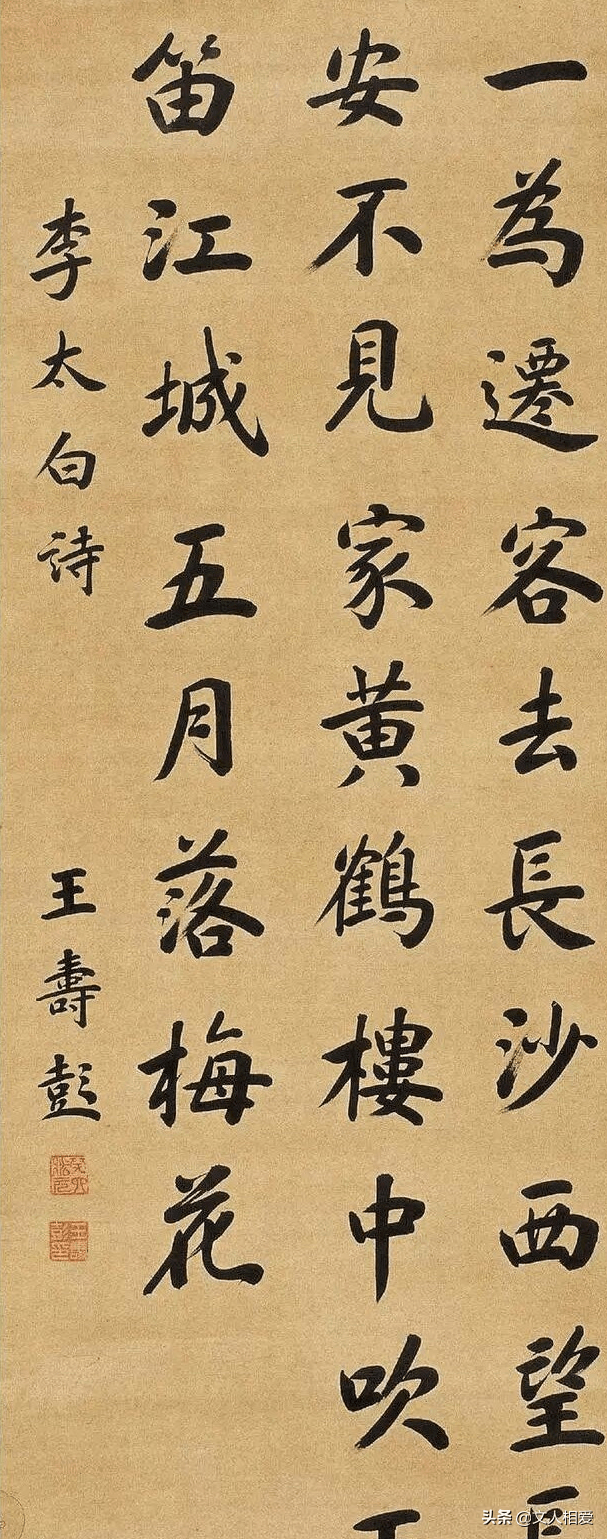 一為遷客去長沙西望
安不見家黃鶴樓中吹
笛江城五月落梅花
李太白詩
王壽彭
头条 @文人相爱